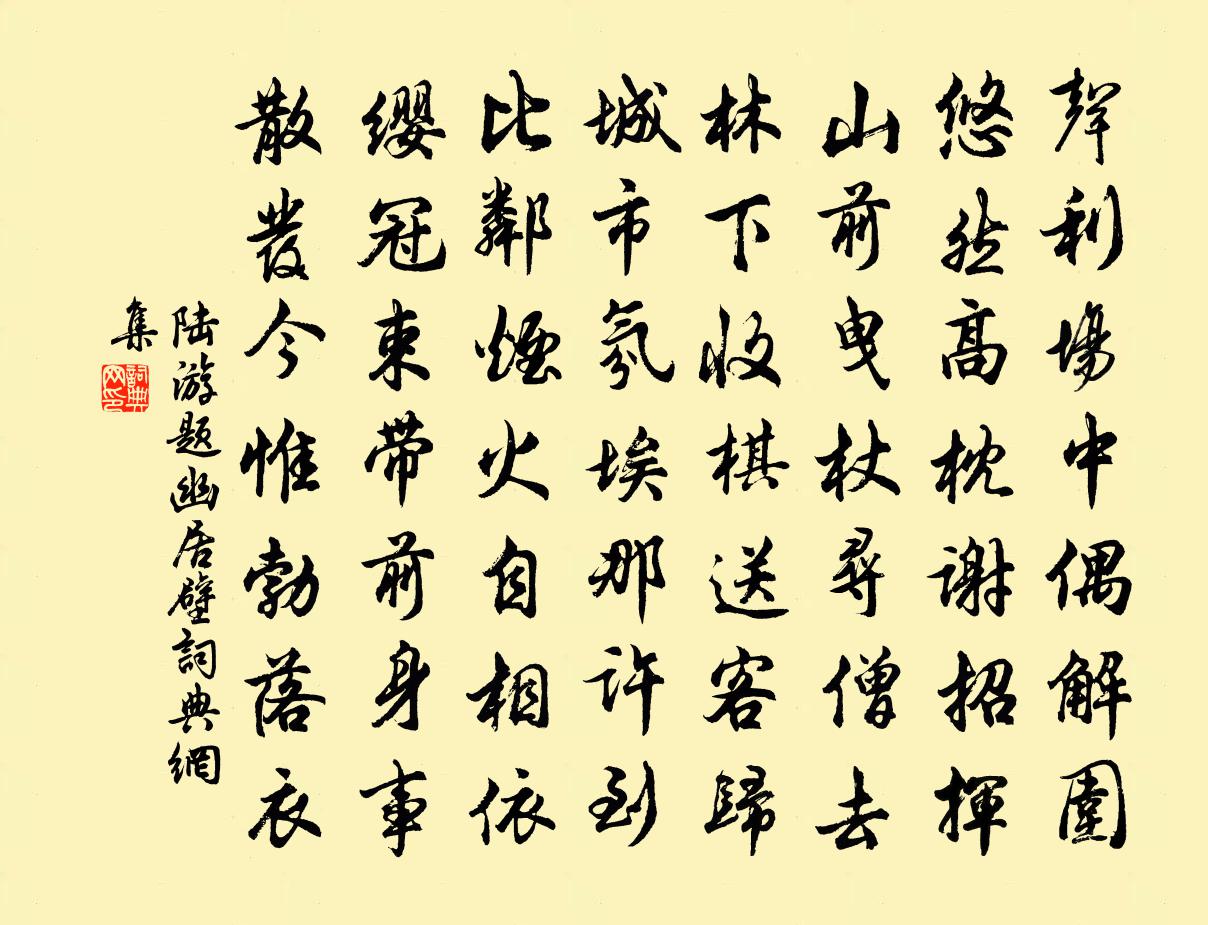 聲利場中偶解圍
悠然高枕謝招揮
山前曳杖尋僧去
林下收棋送客歸
城市氛埃那許到
比鄰煙火自相依
纓冠束帶前身事
散發今惟勃落衣
陆游题幽居壁詞典網
集
詞典網印